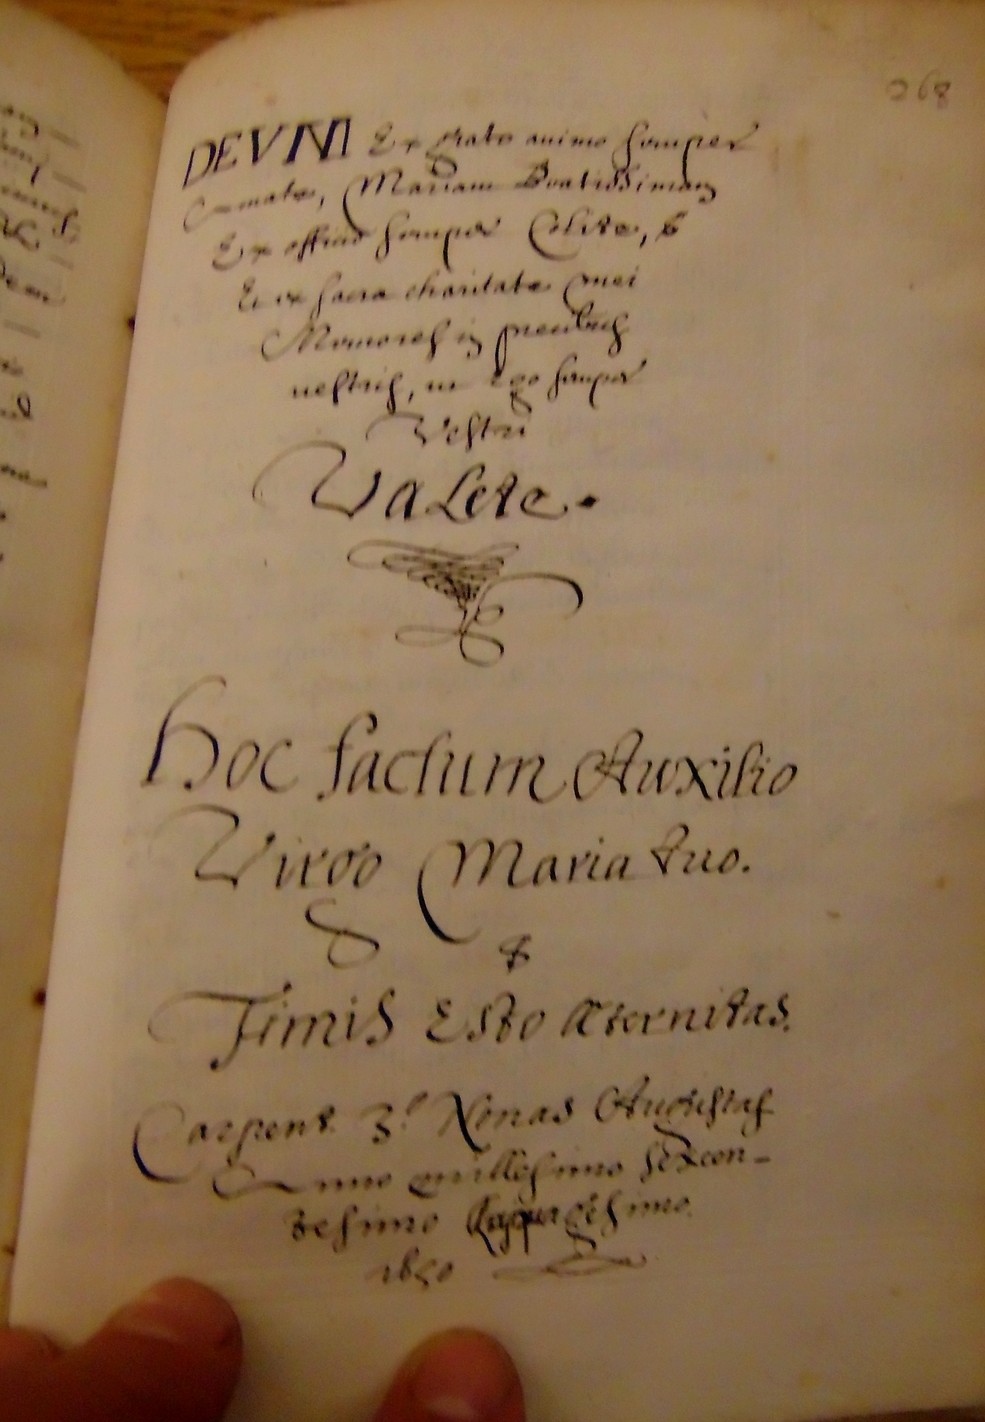 268
DEUM Ex grato animo semper
Amate, Mariam Beatissimam
Ex officio semper Colite, &
Et ex sacra charitate mei
Memores in precibus
vestris, ut ego semper
Vestri
Valete.
Hoc factum Auxilio
Virgo Maria tuo.
&
Finis Esto Æternitas.
Carpent. 3.º Nonas Augustas
Anno millesimo sexcen-
tesimo quinquagesimo
1650